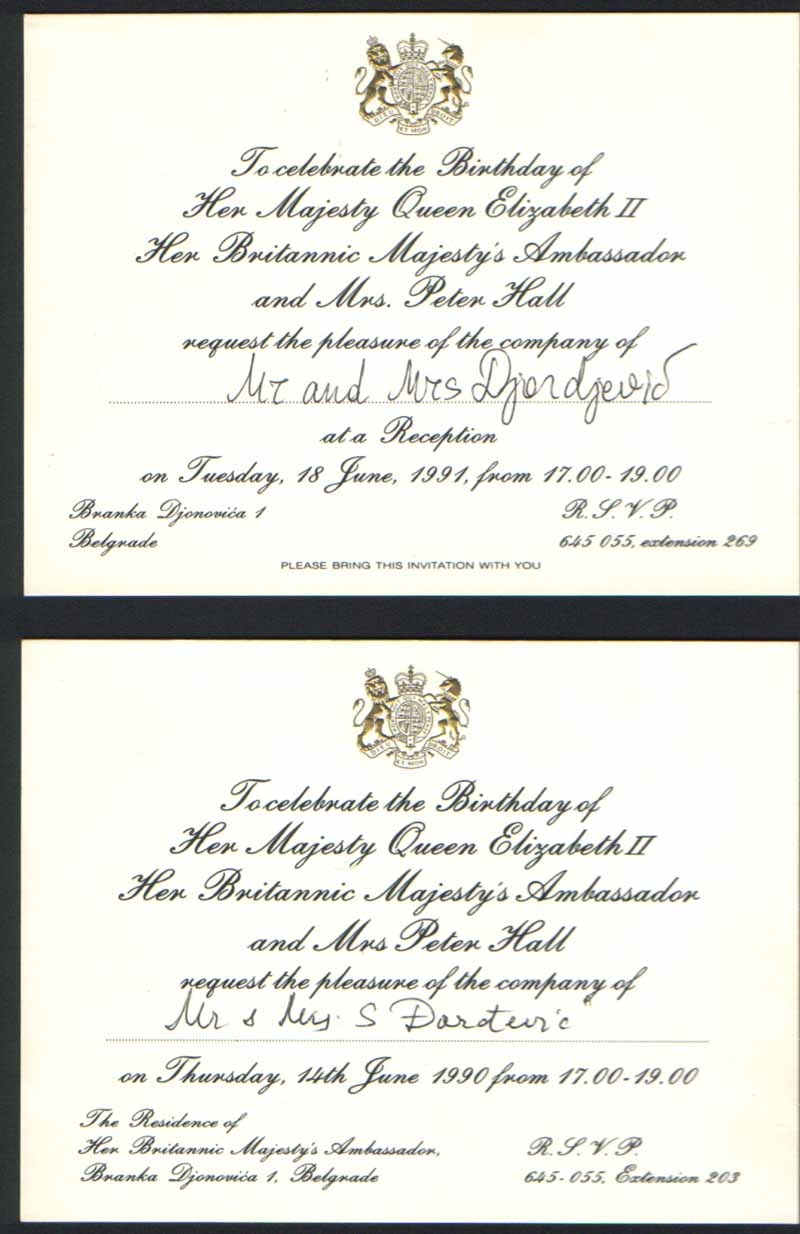 DIEU ET MON DROIT
To celebrate the Birthday of
Her Majesty Queen Elizabeth II
Her Britannic Majesty's Ambassador
and Mrs. Peter Hall
request the pleasure of the company of
Mr and Mrs Djordjević
at a Reception
on Tuesday, 18 June, 1991, from 17.00-19.00
Branka Djonovića 1
Belgrade
R.S.V.P.
645 055, extension 269
PLEASE BRING THIS INVITATION WITH YOU
DIEU ET MON DROIT
To celebrate the Birthday of
Her Majesty Queen Elizabeth II
Her Britannic Majesty's Ambassador
and Mrs Peter Hall
request the pleasure of the company of
Mr & Mrs. S
on Thursday, 14th June 1990 from 17.00-19.00
The Residence of
Her Britannic Majesty's Ambassador,
Branka Djonovića 1, Belgrade
R.S.V.P.
645-055, Extension 203